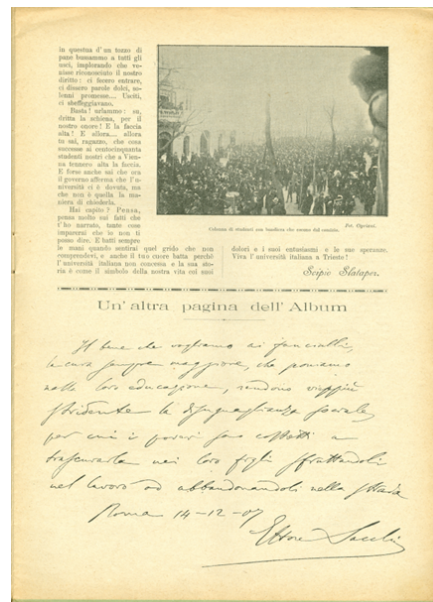 in questua d'un tozzo di
pane bussammo a tutti gli
usci, implorando che ve-
nisse riconosciuto il nostro
diritto: ci fecero entrare,
ci dissero parole dolci, so-
lenni promesse.... Usciti,
ci sbeffeggiavano.
Basta! urlammo: su,
dritta la schiena, per il
nostro onore! E la faccia
alta! E allora.... allora
tu sai, ragazzo, che cosa
successe ai centocinquanta
studenti nostri che a Vien-
na tennero alta la faccia.
E forse anche sai che ora
il governo afferma che l'u-
niversità ci è dovuta, ma
che non è quella la ma-
niera di chiederla.
Hai capito? Pensa,
pensa molto sui fatti che
t'ho narrato, tante cose
imparerai che io non ti
posso dire. E batti sempre
le mani quando sentirai quel grido che non
comprendevi, e anche il tuo cuore batta perchè
l'università italiana non concessa e la sua sto-
ria è come il simbolo della nostra vita coi suoi
Colonna di studenti con bandiera che escono dal comizio.
dolori e i suoi entusiasmi e le sue speranze.
Viva l'università italiana a Trieste!
Scipio Slataper.
Un' altra pagina dell' Album
Il bene che vogliamo ai fanciulli,
la cura sempre maggiore, che poniamo
nella loro educazione, rendono vieppiù
stridente la disuguaglianza sociale,
per cui i poveri sono costretti a
trascurarla nei loro figli sfruttandoli
nel lavoro od abbandonandoli nella strada
Roma 14-12-07
Ettore Sacchi